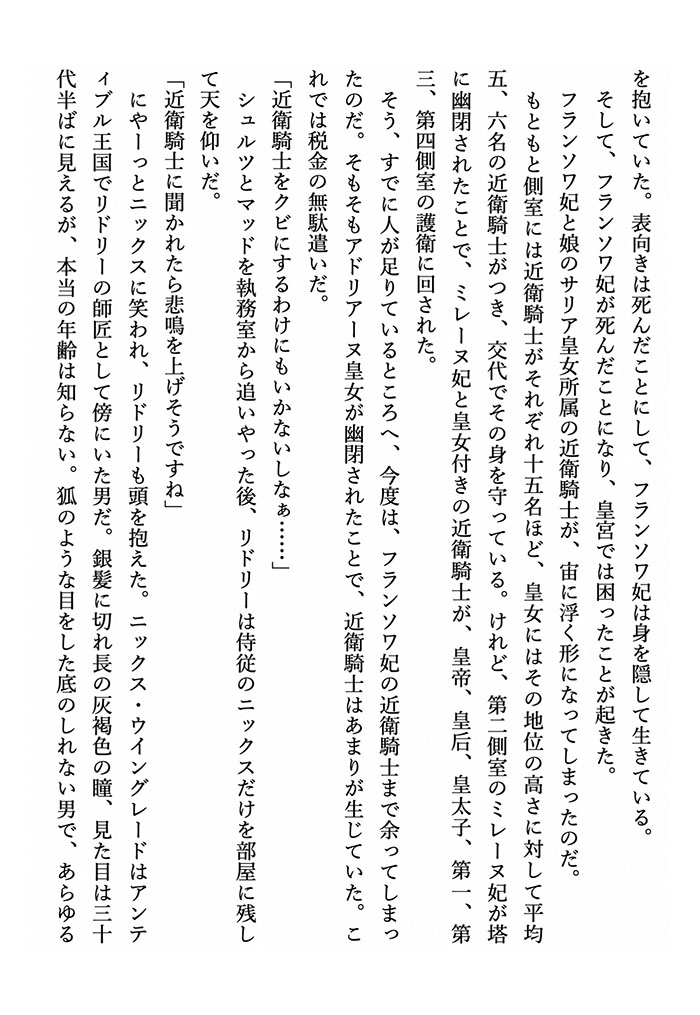 を抱いていた。表向きは死んだことにして、フランソワ妃は身を隠して生きている。
そして、フランソワ妃が死んだことになり、皇宮では困ったことが起きた。
フランソワ妃と娘のサリア皇女所属の近衛騎士が、宙に浮く形になってしまったのだ。
もともと側室には近衛騎士がそれぞれ十五名ほど、皇女にはその地位の高さに対して平均
五、六名の近衛騎士がつき、交代でその身を守っている。けれど、第二側室のミレーヌ妃が塔
に幽閉されたことで、ミレーヌ妃と皇女付きの近衛騎士が、皇帝、皇后、皇太子、第一、第
三、第四側室の護衛に回された。
そう、すでに人が足りているところへ、今度は、フランソワ妃の近衛騎士まで余ってしまっ
たのだ。そもそもアドリアーヌ皇女が幽閉されたことで、近衛騎士はあまりが生じていた。こ
れでは税金の無駄遣いだ。
「近衛騎士をクビにするわけにもいかないしなぁ……」
シュルツとマッドを執務室から追いやった後、リドリーは侍従のニックスだけを部屋に残し
て天を仰いだ。
「近衛騎士に聞かれたら悲鳴を上げそうですね」
にやーっとニックスに笑われ、リドリーも頭を抱えた。ニックス・ウイングレードはアンテ
ィブル王国でリドリーの師匠として傍にいた男だ。銀髪に切れ長の灰褐色の瞳、見た目は三十
代半ばに見えるが、本当の年齢は知らない。狐のような目をした底のしれない男で、あらゆる